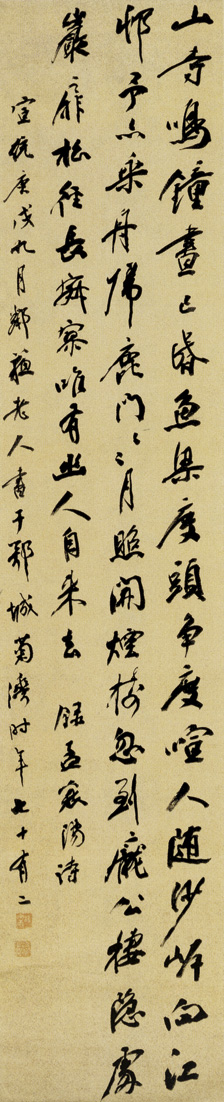 山寺鳴鐘晝已昏魚梁度頭爭度喧人隨沙岸向江
邨予亦乘舟歸鹿門々々月照開煙樹忽到龐公棲隱處
巖扉松徑長寂寥唯有幽人自來去 錄孟襄陽詩
宣統庚戌九月鄰蘇老人書于鄂城菊灣時年七十有二